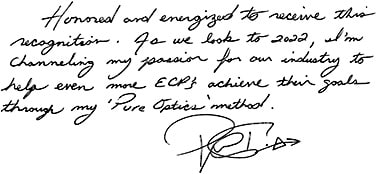 Honored and energized to receive this
recognition. As we look to 2022, I'm
channeling my passion for our industry to
help even more ECPs achieve their goals
through my 'Pure Optics' method.